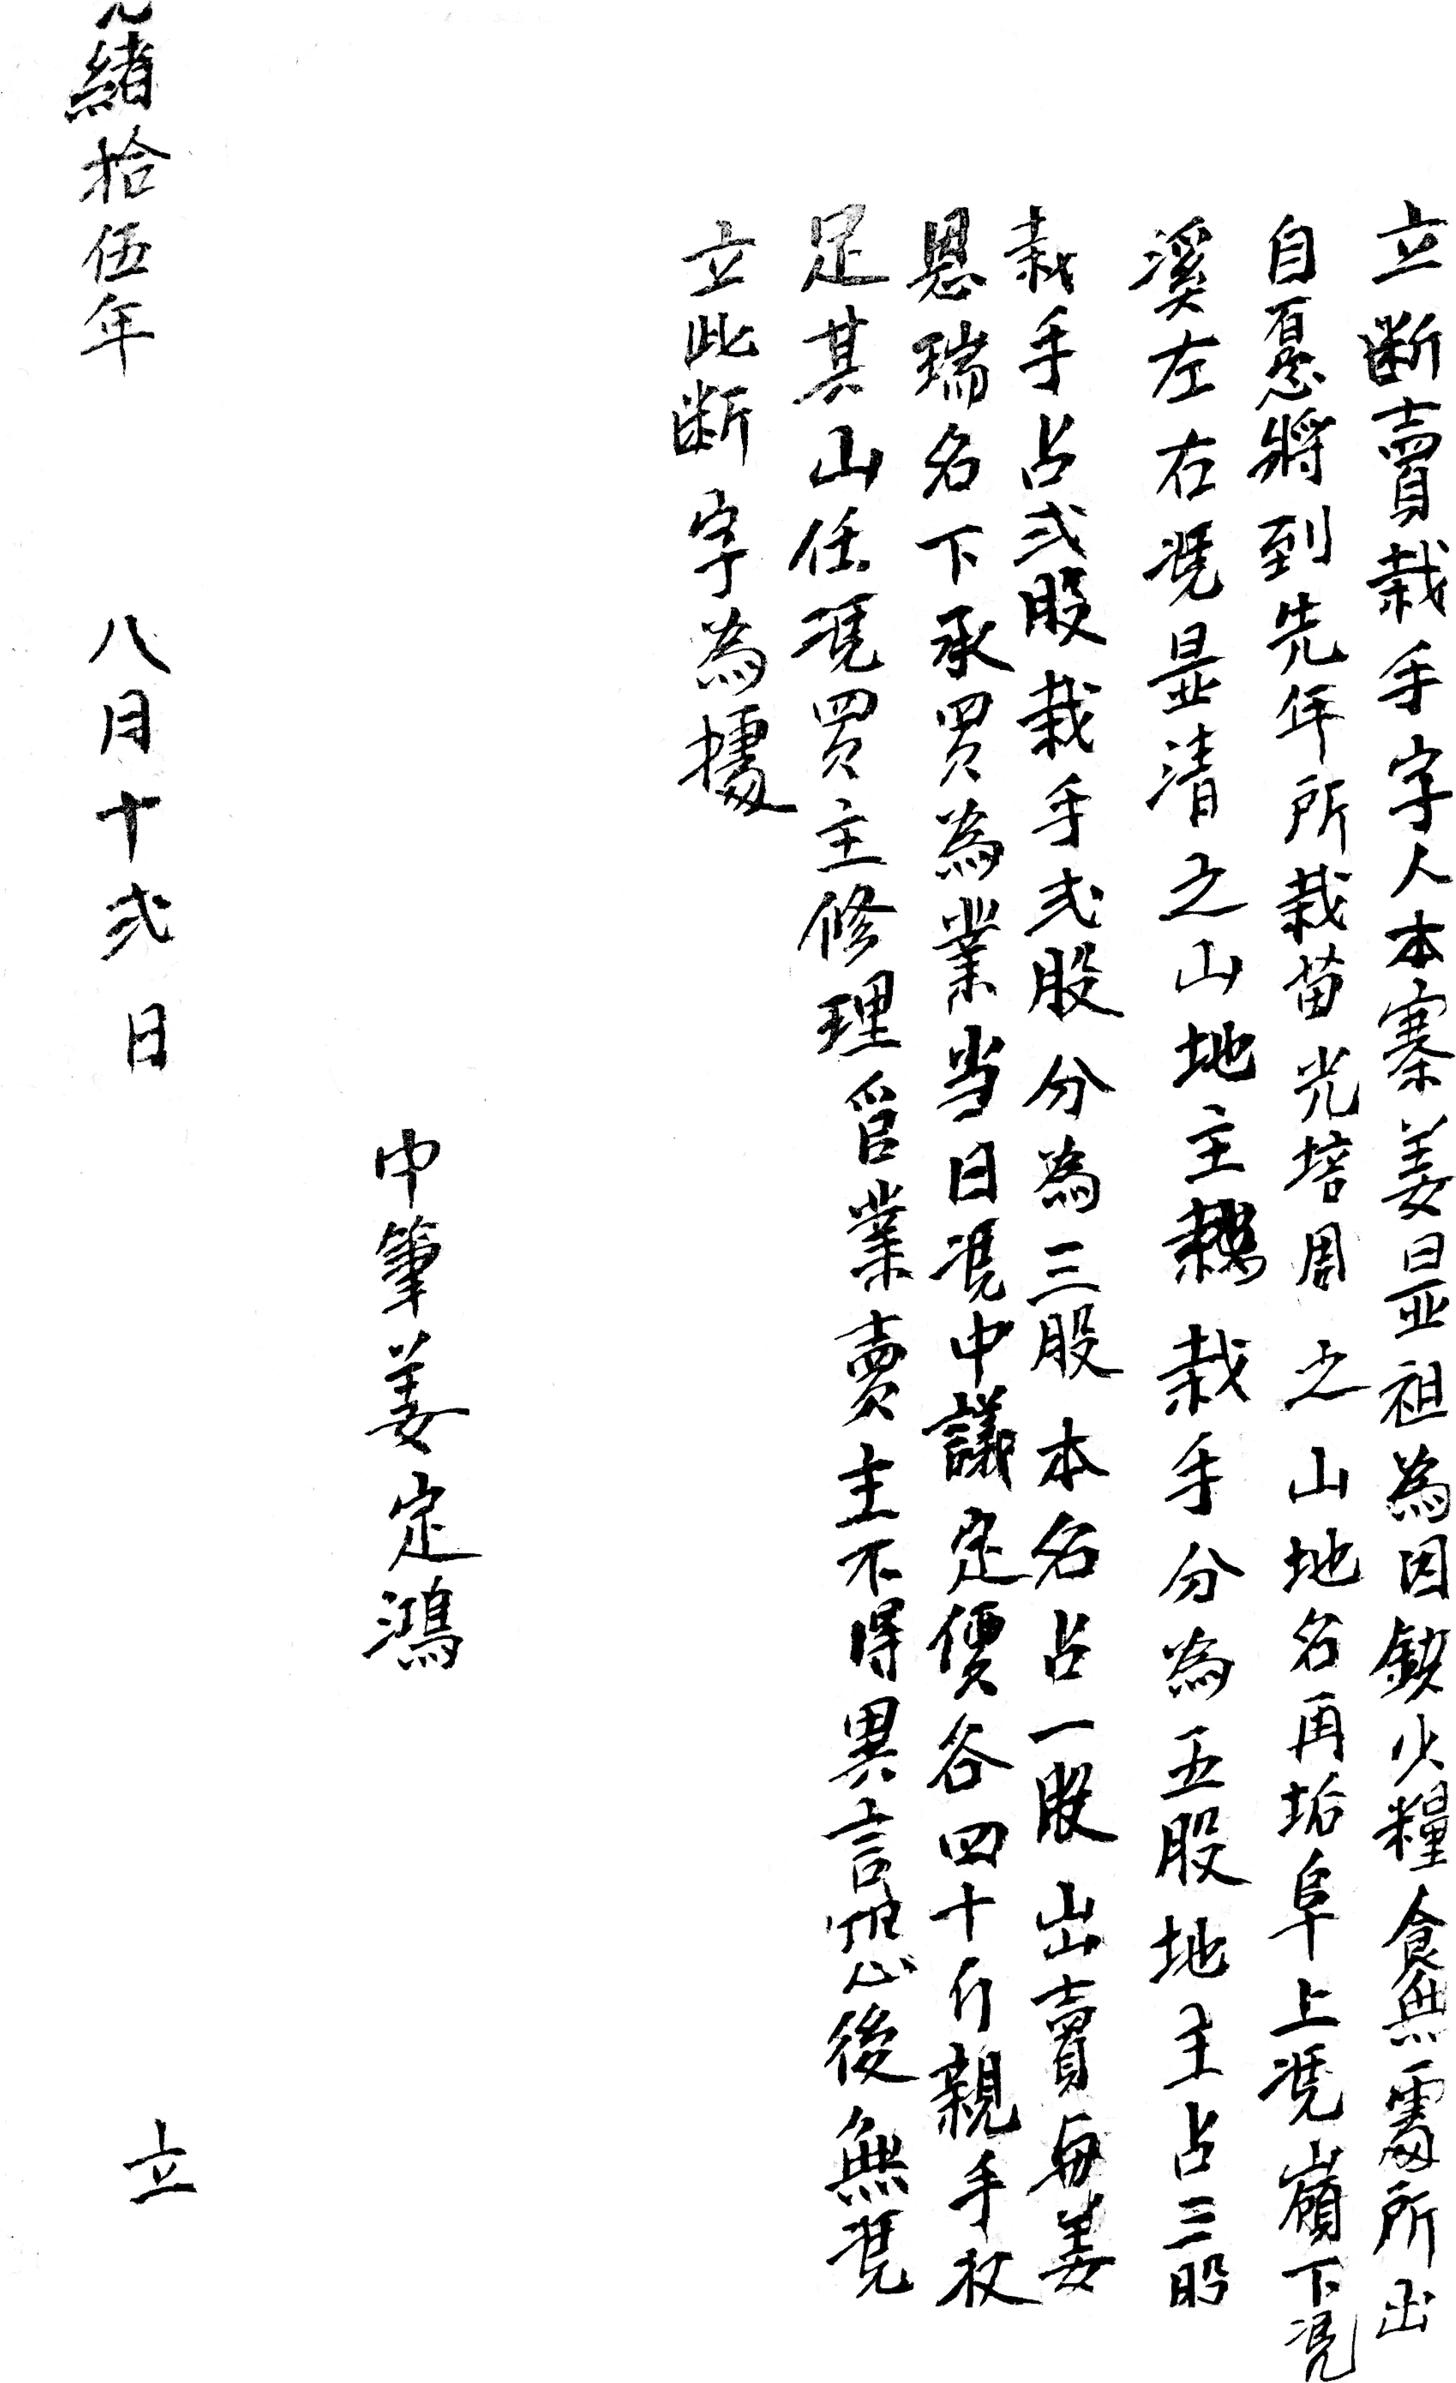 立断賣栽手字人本寨姜显祖為因缺少糧食無處所出
自愿將到先年所栽苗光培周之山地名再垢阜上凴嶺下凴
溪左右凴显清之山地主栽手分為五股地主占三股
栽手占弍股栽手弍股分為三股本名占一股出賣與姜
恩瑞名下承買為業当日凴中議定價谷四十斤親手收
足其山任凴買主修理管業賣主不得異言恐後無凴
立此断字為據
中筆姜定鴻
光緒拾伍年八月十弍日立